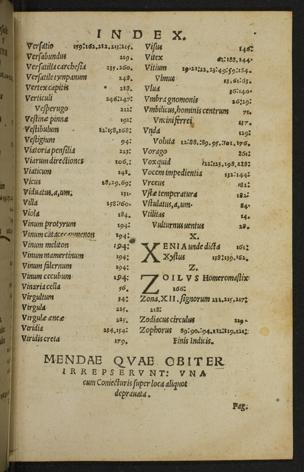 INDEX.
Versatio 159:162,212,213,215.
Versabundus 219.
Versatilia carchesia 235.260.
Versatile tympanum 248.
Vertex capitis 218.
Verticuli 246:247:
Vesperugo 212:
Vestinæ pinnæ 191:
Vestibulum
Vestigium 94:
Viatoria pensilia 223:
Viarum directiones 106.:
Viaticum 248.
Vicus 28,29.69;
Viduatus,a,um.
Villa 158:160:
Viola 184.
Vinum protyrum 194:
Vinum catacecaumenon 194:
Vinum meliton 194:
Vinum mamertinum 194:
Vinum falernum 194:
Vinum cecubum 194:
Vinaria cella 56.
Virgultum 24:
Virgula 225.
Virgulæ aneæ 225:
Viridia 154,154:
Viridis creta 179.
Visus 146:
Vitex 62:133.144.
Vitium
Vlmus 23:61.63:
Vlua 36:
Vmbra gnomonis 26:29:
Vmbilicus, hominis centrum 71.
Vncini ferrei 157.
Vnda 219:
Voluta
Vorago 261:
Vox quid
Vocem impedientia 132:144:
Vrceus 181:
Vsta temperatura 182:
Vstulatus,a,um: 84.
Vtilitas 14.
Vulturnus uentus 28.
X.
XENIA unde dicta 161:
Xystus
Z.
ZOILVS Homeromastix
166:
Zona.XII. signorum 211,215,217:
218:
Zodiacus circulus 219.
Zophorus
Finis Indicis.
MENDAE QVAE OBITER
IRREPSERVNT: VNA
cum Coniecturis super loca aliquot
deprauata.
Pag.